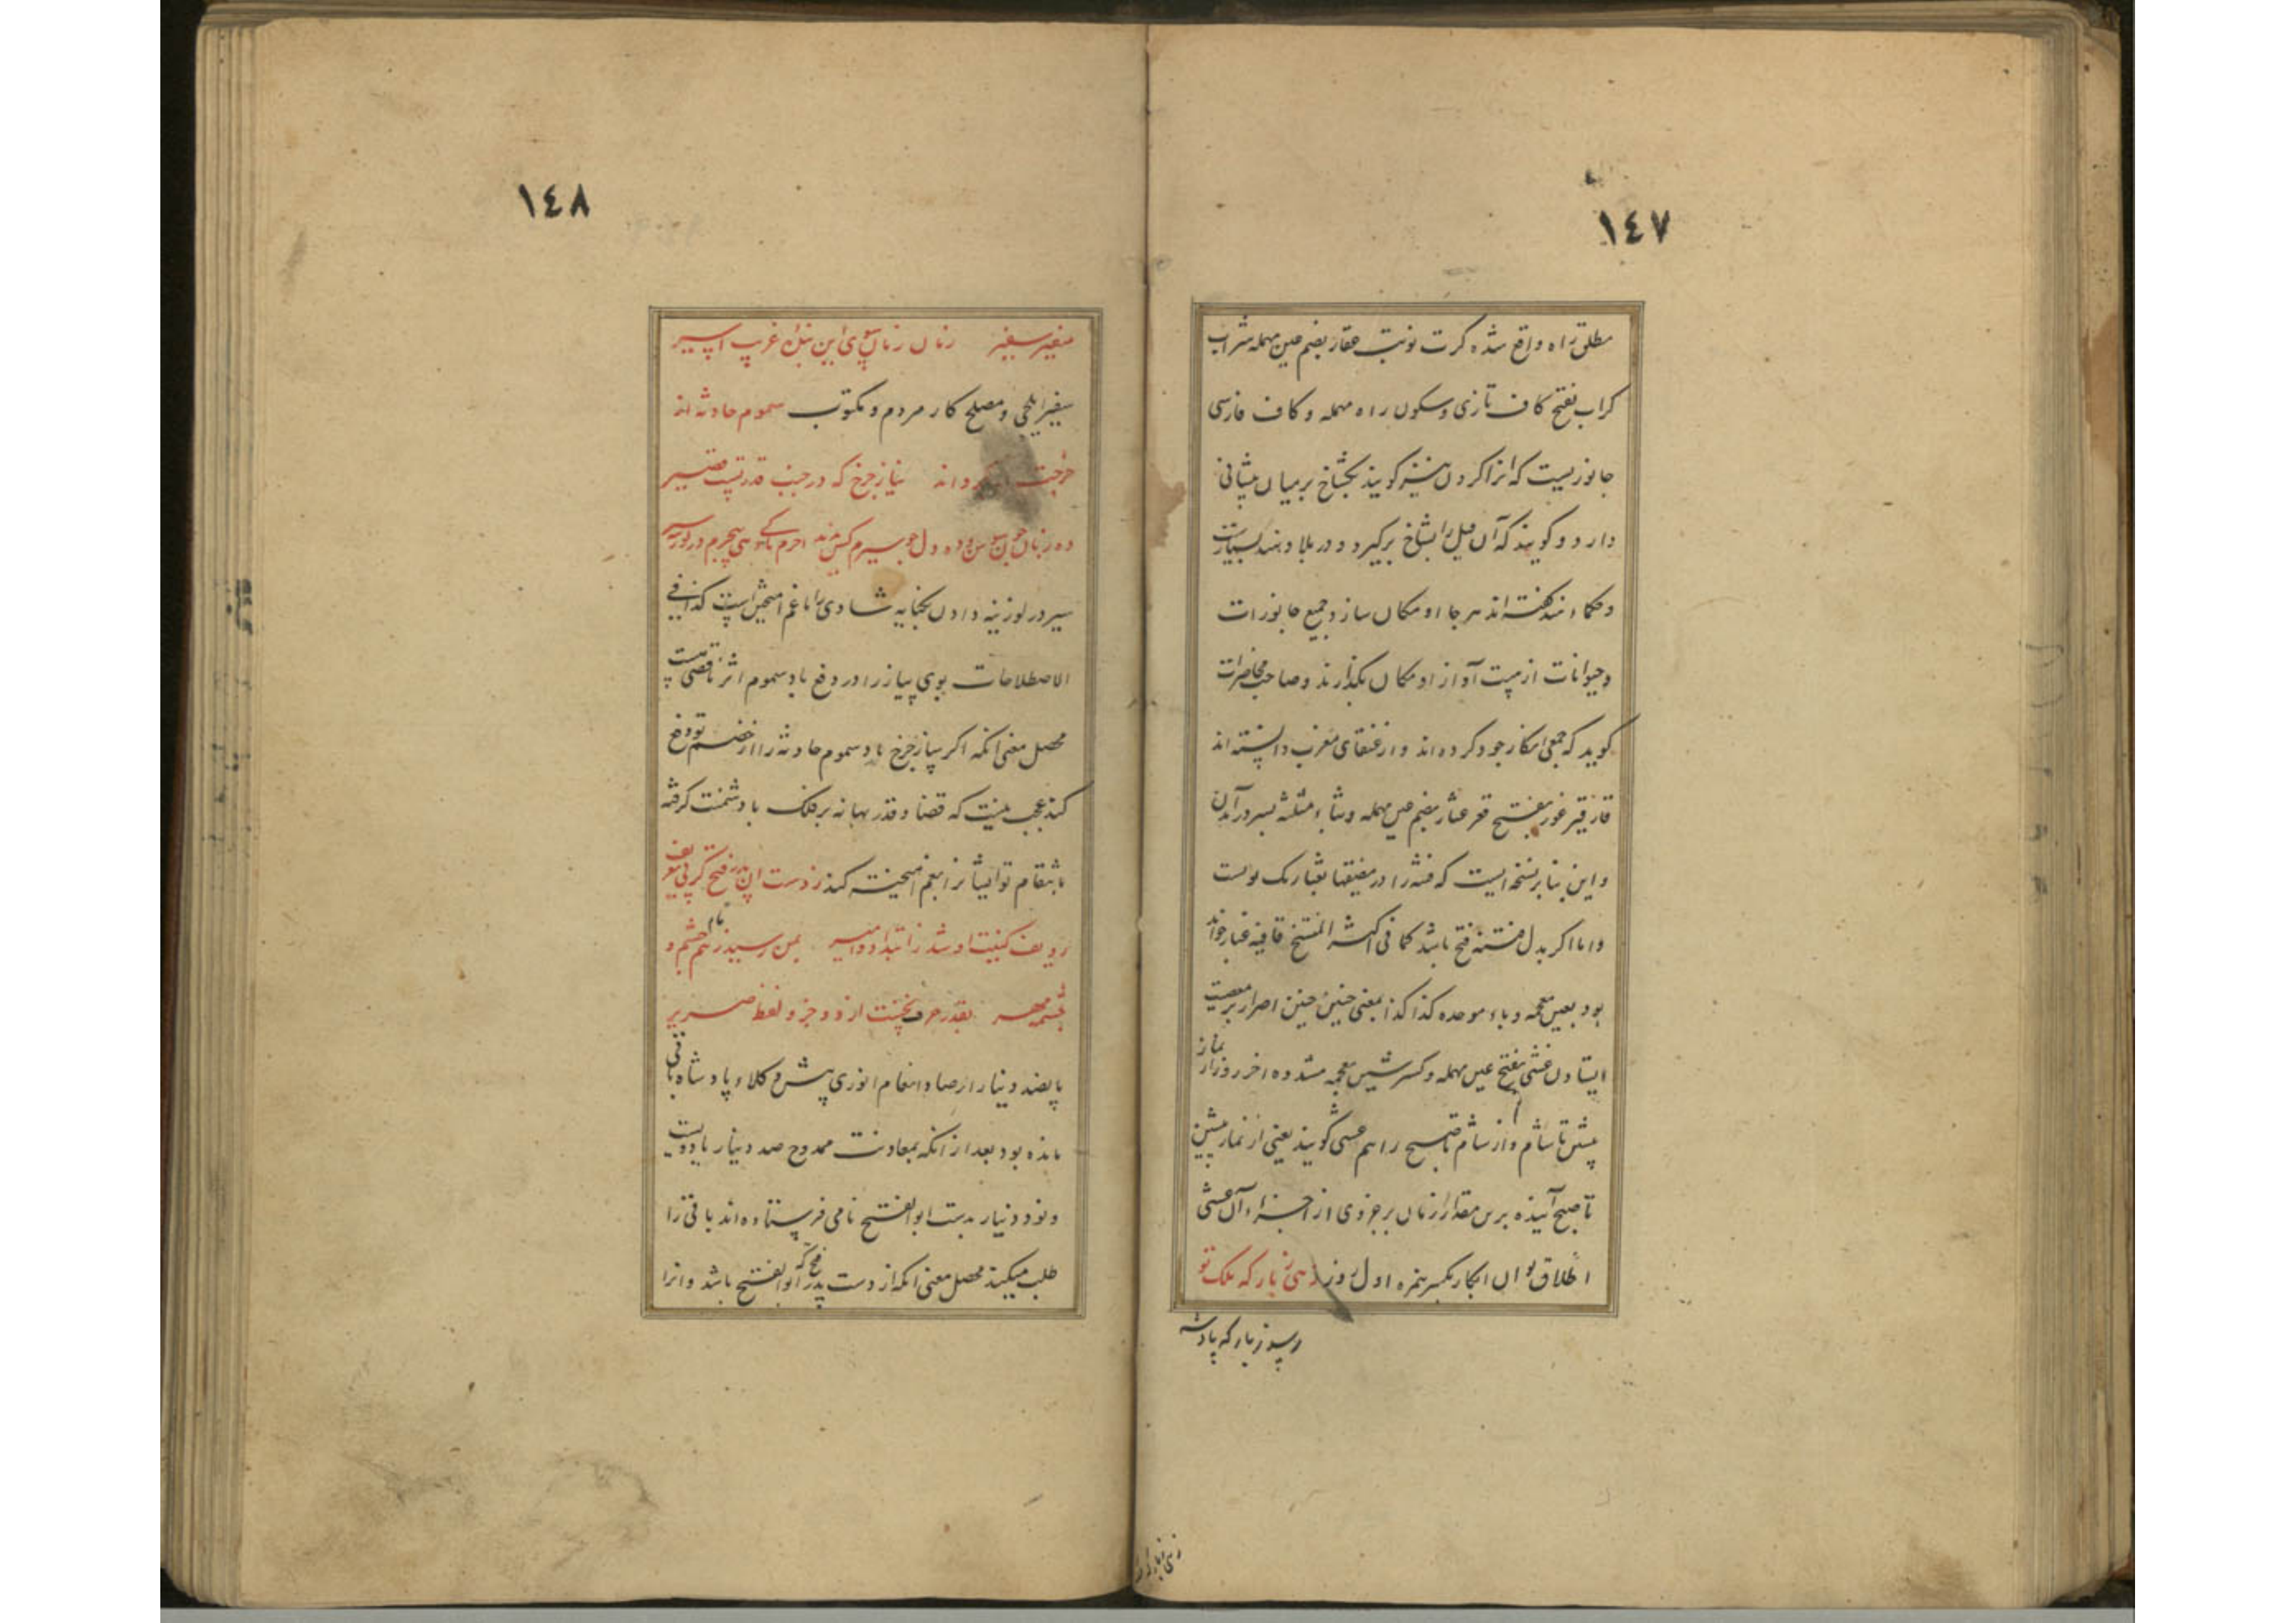 ١٤٧
مطلق راه واقع شده کرت نوبت عقار بضم عین مهمله شراب
کرک بفتح کاف تازی و سکون راء مهمله و کاف فارسی
جانوریست که انرا کردن نیز کویند یکشاخ بر میان پیشانی
دارد و کویند که آن فیل را بشاخ برکیرد و در بلاد هند بسیارست
و حکماء هند کفته اند هر جا او مکان سازد جمیع جانوران
و حیوانات از هیبت آواز او مکان بگذارند و صاحب محاضرات
کوید که جمعی انکار وجود کرده اند و از عنقای مغرب دانسته اند
قار قیر غور بفتح قعر عثار بضم عین مهمله و ثاء مثلثه بسر درآمدن
و این بنا بر نسخه ایست که فتنه را در مضیقها بعثار یک لوست
و اما اکر بدل فتنه فتح باشد کما فی اکثر النسخ قافیه غبار خواند
بود بغین معجمه و باء موحده کذا کذا بمعنی چنین چنین اصرار بر معصیت
ایستادن عشی بفتح عین مهمله و کسر شین معجمه مشدده اخر روز از نماز
پیشین تا شام و از شام تا صبح را هم عشی کویند یعنی از نماز پیشین
تا صبح آینده برین مقدار زمان بر جزوی از اجزاء آن عشی
اطلاق توان ابکار بکسر همزه اول روز زهی زبار که ملک تو
١٤٨
سفیر سفیر زمان زمان سوی این بنده غریب اسیر
سفیر ایلچی و مصلح کار مردم و مکتوب سموم حادثه از
پیاز چرخ که در جنب قدر تست قصیر
ده زبان چون سوسن و ده دل چو سیرم
سیر در لوزینه دادن بکنایه شادی را با غم امیختن است کذا فی
الاصطلاحات بوی پیاز را در دفع باد سموم اثر ناقصی هست
محصل معنی انکه اکر پیاز چرخ باد سموم حادثه را از خصم تو دفع
کند عجب نیست که قضا و قدر بهانه بر فلک باد شمنت کرفته
بانتقام تو ایشانرا بغم امیخته کند ز دست ان پدر فتح کز پی تعریف
ردیف کنیت او شد ز ابتدا دو امیر بمن رسید
بقدر حرف نخست از دو جزو لفظ ضریر
پانصد دینار از صله و انعام انوری پیش وکلاء پادشاه باقی
مانده بود بعد از انکه بمعاونت ممدوح صد دینار یا دویست
و نود دینار بدست ابو الفتح نامی فرستاده اند باقی را
طلب میکند محصل معنی انکه از دست پدر فتح که ابو الفتح باشد و انرا